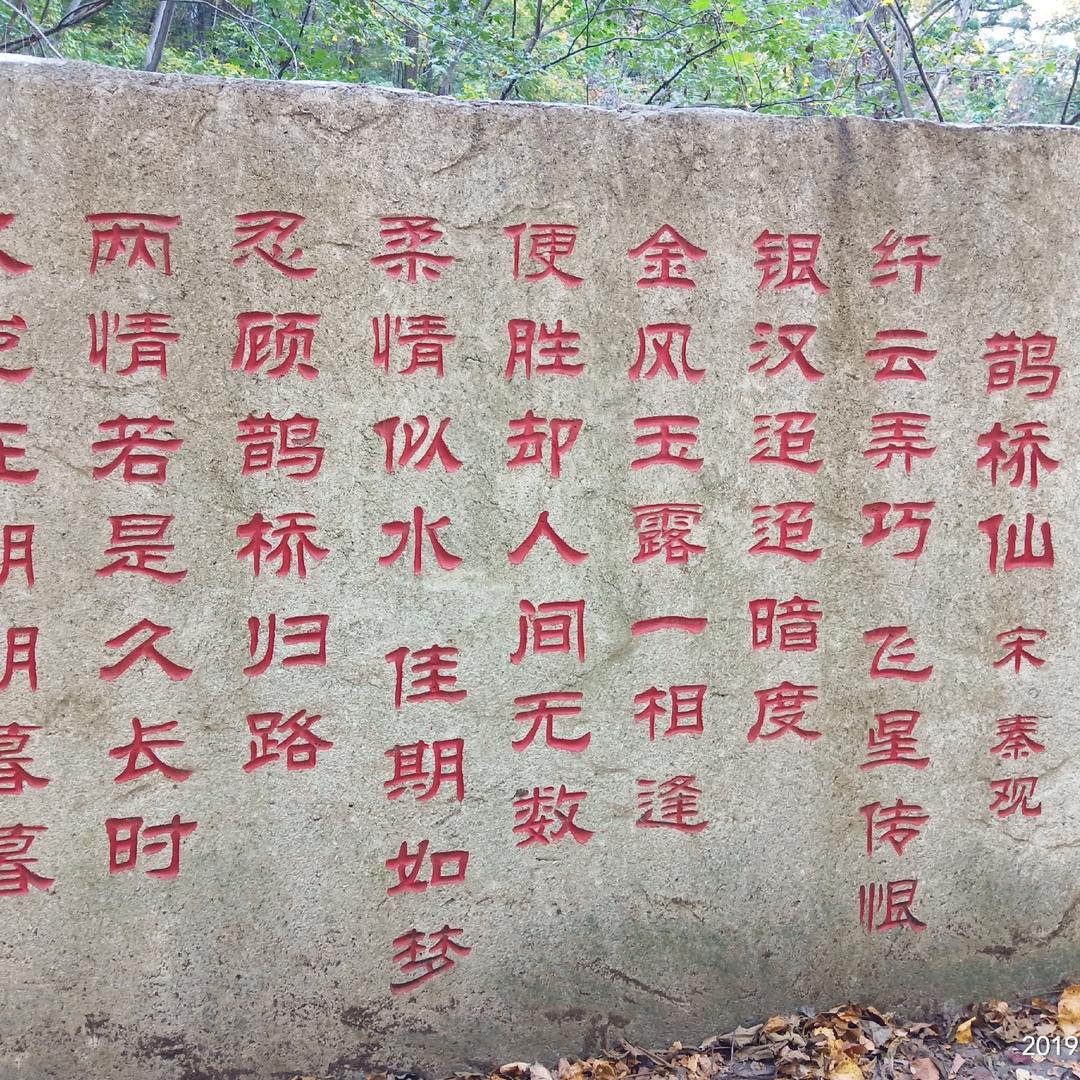 鹊桥仙 宋 秦观
纤云弄巧 飞星传恨
银汉迢迢暗度
金风玉露一相逢
便胜却人间无数
柔情似水 佳期如梦
忍顾鹊桥归路
两情若是久长时
又岂在朝朝暮暮
2019